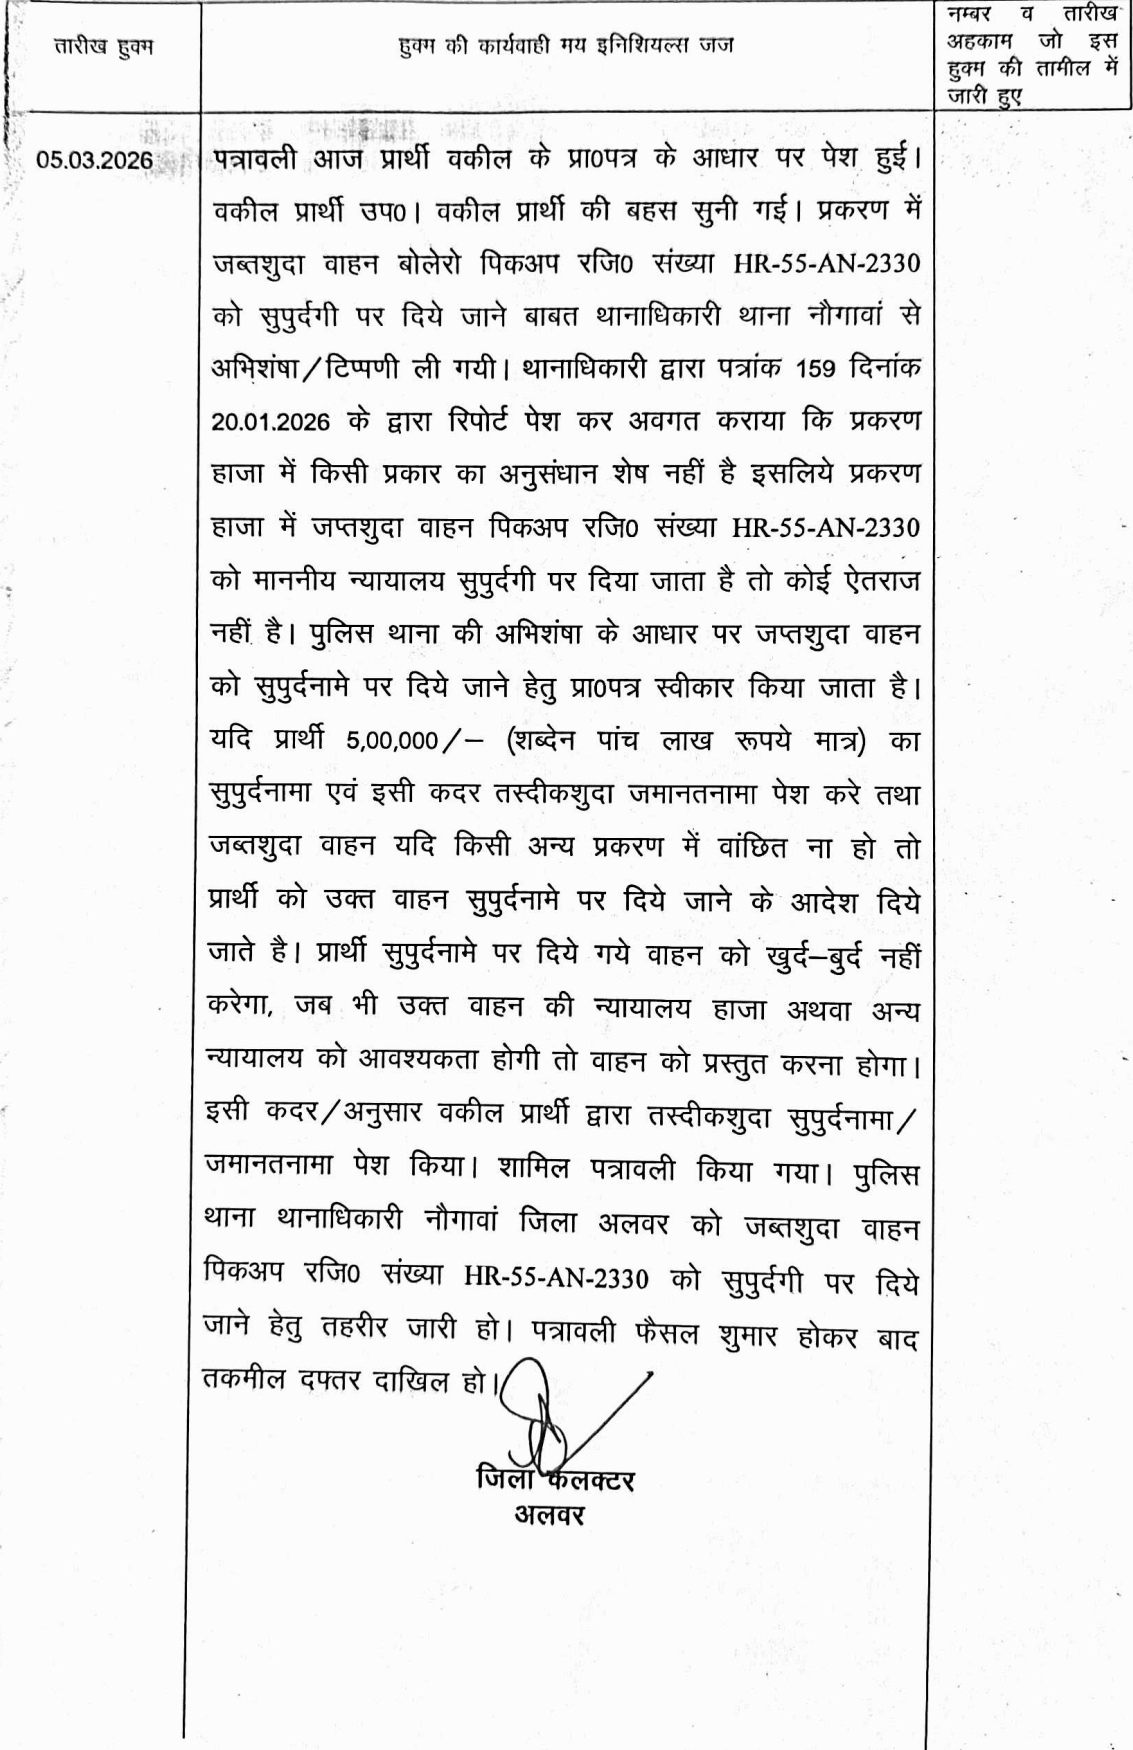 तारीख हुक्म
हुक्म की कार्यवाही मय इनिशियल्स जज
नम्बर व तारीख
अहकाम जो इस
हुक्म की तामील में
जारी हुए
05.03.2026
पत्रावली आज प्रार्थी वकील के प्रा0पत्र के आधार पर पेश हुई।
वकील प्रार्थी उप0। वकील प्रार्थी की बहस सुनी गई। प्रकरण में
जब्तशुदा वाहन बोलेरो पिकअप रजि0 संख्या HR-55-AN-2330
को सुपुर्दगी पर दिये जाने बाबत थानाधिकारी थाना नौगावां से
अभिशंषा/टिप्पणी ली गयी। थानाधिकारी द्वारा पत्रांक 159 दिनांक
20.01.2026 के द्वारा रिपोर्ट पेश कर अवगत कराया कि प्रकरण
हाजा में किसी प्रकार का अनुसंधान शेष नहीं है इसलिये प्रकरण
हाजा में जप्तशुदा वाहन पिकअप रजि0 संख्या HR-55-AN-2330
को माननीय न्यायालय सुपुर्दगी पर दिया जाता है तो कोई ऐतराज
नहीं है। पुलिस थाना की अभिशंषा के आधार पर जप्तशुदा वाहन
को सुपुर्दनामे पर दिये जाने हेतु प्रा0पत्र स्वीकार किया जाता है।
यदि प्रार्थी 5,00,000/– (शब्देन पांच लाख रूपये मात्र) का
सुपुर्दनामा एवं इसी कदर तस्दीकशुदा जमानतनामा पेश करे तथा
जब्तशुदा वाहन यदि किसी अन्य प्रकरण में वांछित ना हो तो
प्रार्थी को उक्त वाहन सुपुर्दनामे पर दिये जाने के आदेश दिये
जाते है। प्रार्थी सुपुर्दनामे पर दिये गये वाहन को खुर्द–बुर्द नहीं
करेगा, जब भी उक्त वाहन की न्यायालय हाजा अथवा अन्य
न्यायालय को आवश्यकता होगी तो वाहन को प्रस्तुत करना होगा।
इसी कदर/अनुसार वकील प्रार्थी द्वारा तस्दीकशुदा सुपुर्दनामा/
जमानतनामा पेश किया। शामिल पत्रावली किया गया। पुलिस
थाना थानाधिकारी नौगावां जिला अलवर को जब्तशुदा वाहन
पिकअप रजि0 संख्या HR-55-AN-2330 को सुपुर्दगी पर दिये
जाने हेतु तहरीर जारी हो। पत्रावली फैसल शुमार होकर बाद
तकमील दफ्तर दाखिल हो।
जिला कलक्टर
अलवर